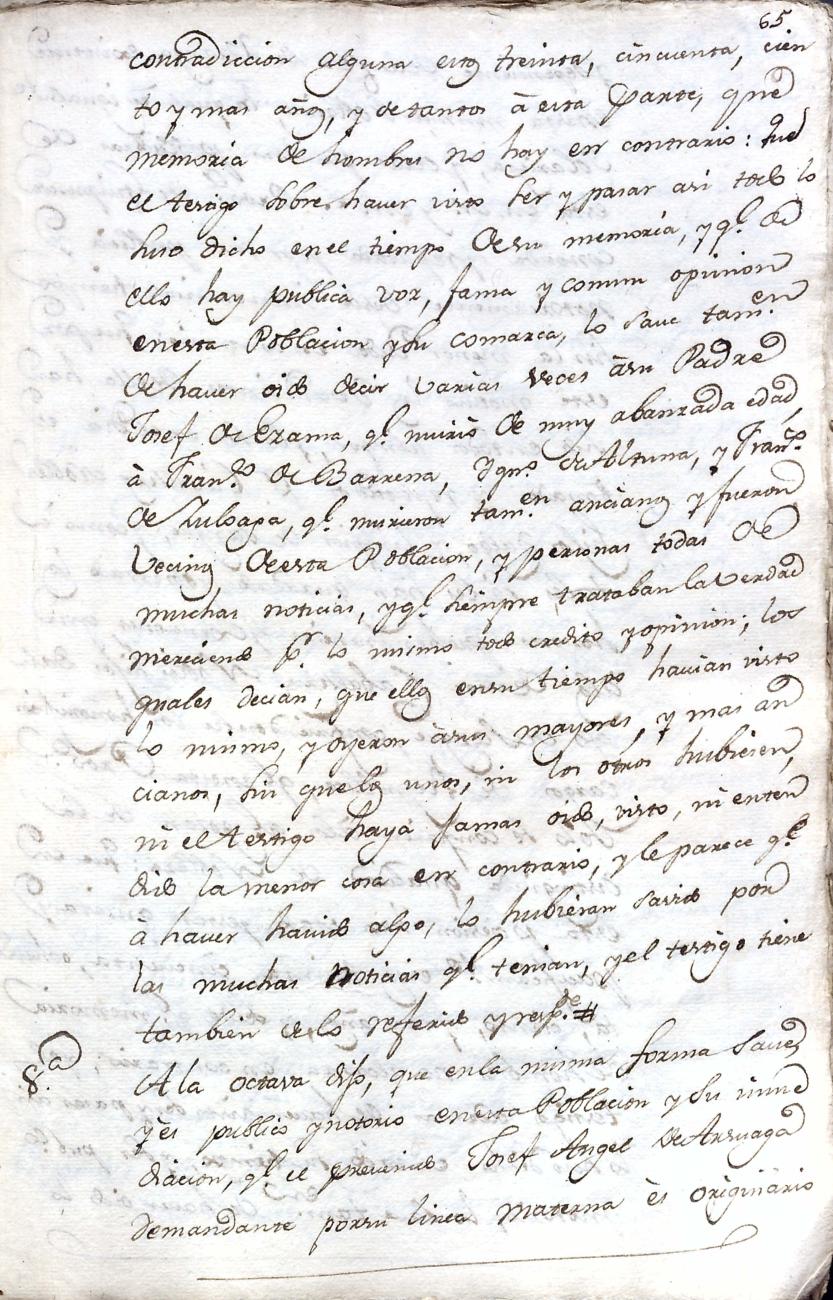 65
contradiccion alguna estos treinta, cincuenta, cien
to y mas años, y de tantos à esta Parte, que
memoria de hombres no hay en contrario: Que
el testigo sobre haver visto ser y pasar asi todo lo
suso dicho en el tiempo de su memoria, y q.e de
ello hay publica vox, fama y comun opinion
en esta Poblacion y su comarca, lo save tam.en
de haver oido decir varias veces à su Padre
Josef de Erama, q.e murió de muy abanzada edad,
à Fran.co de Barrena, Ygn.o de Altuna, y Fran.co
de Zuloaga, q.e murieron tam.en ancianos y fueron
Vecinos de esta Poblacion, y personas todas de
muchas noticias, y q.e siempre trataban la verdad
mereciendo p.r lo mismo todo credito y opinion; los
quales decian, que ellos en su tiempo havian visto
lo mismo, y oyeron à sus mayores, y mas an
cianos, sin que los unos, ni los otros hubiesen,
ni el testigo haya jamas oido, visto, ni enten
dido la menor cosa en contrario, y le parece q.e
a haver havido algo, lo hubieran savido por
las muchas noticias q.e tenian, y el testigo tiene
tambien de lo referido y resp.de #
8.a
A la octava dijo, que en la misma forma save,
y es publico y notorio en esta Poblacion y su inme
diacion, q.e el prevenido Josef Angel de Arruaga
demandante por su linea materna ès originario